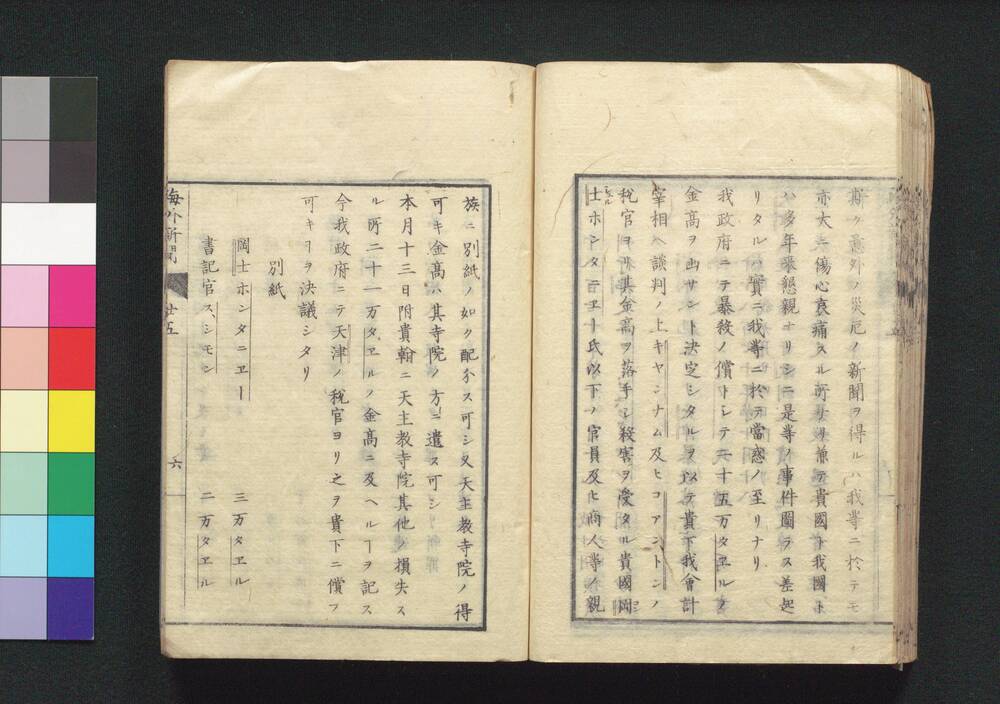 斯ク意外ノ災厄ノ新聞ヲ得ルハ我等ニ於テモ
亦大ニ傷心哀痛スル所ナリ兼テ貴國ト我國ト
ハ多年眾懇親ナリシニ是等ノ事件圖ラス差起
リタルハ實ニ我等ニ於テ當惑ノ至リナリ
我政府ニテ暴殺ノ償トシテ二十五万タヱルノ
金高ヲ出サント決定シタルヲ以テ貴下我會計
宰相ヘ談判ノ上キヤンナム及ヒコアントンノ
税官ヨリ其金高ヲ落手シ殺害ヲ受タル貴國岡
士ホンタニヱー氏以下ノ官員及ヒ商人等ノ親
族ニ別紙ノ如ク配分ス可シ又天主教寺院ノ得
可キ金高ハ其寺院ノ方ニ遣ス可シ
本月十三日附貴翰ニ天主教寺院其他ノ損失ス
ル所二十一万タヱルノ金高ニ及ヘルヿヲ記ス
今我政府ニテ天津ノ税官ヨリ之ヲ貴下ニ償フ
可キヿヲ決議シタリ
別紙
岡士ホンタニヱー 三万タヱル
書記官スシモン 二万タヱル
海外新聞 廿五 六